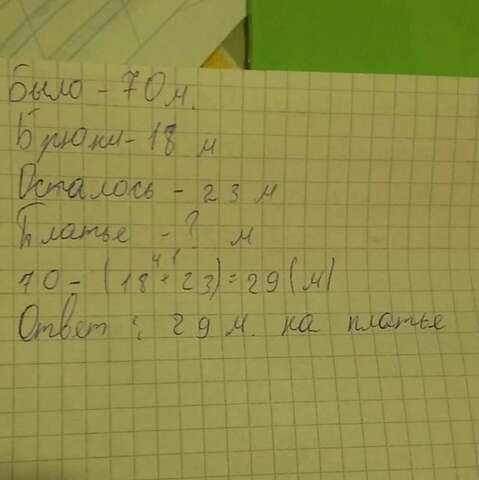 Было - 70 м.
Брюки - 18 м
Осталось - 23 м
Платье - ? м
41
70 - (18 + 23) = 29 (м)
Ответ : 29 м. на платье